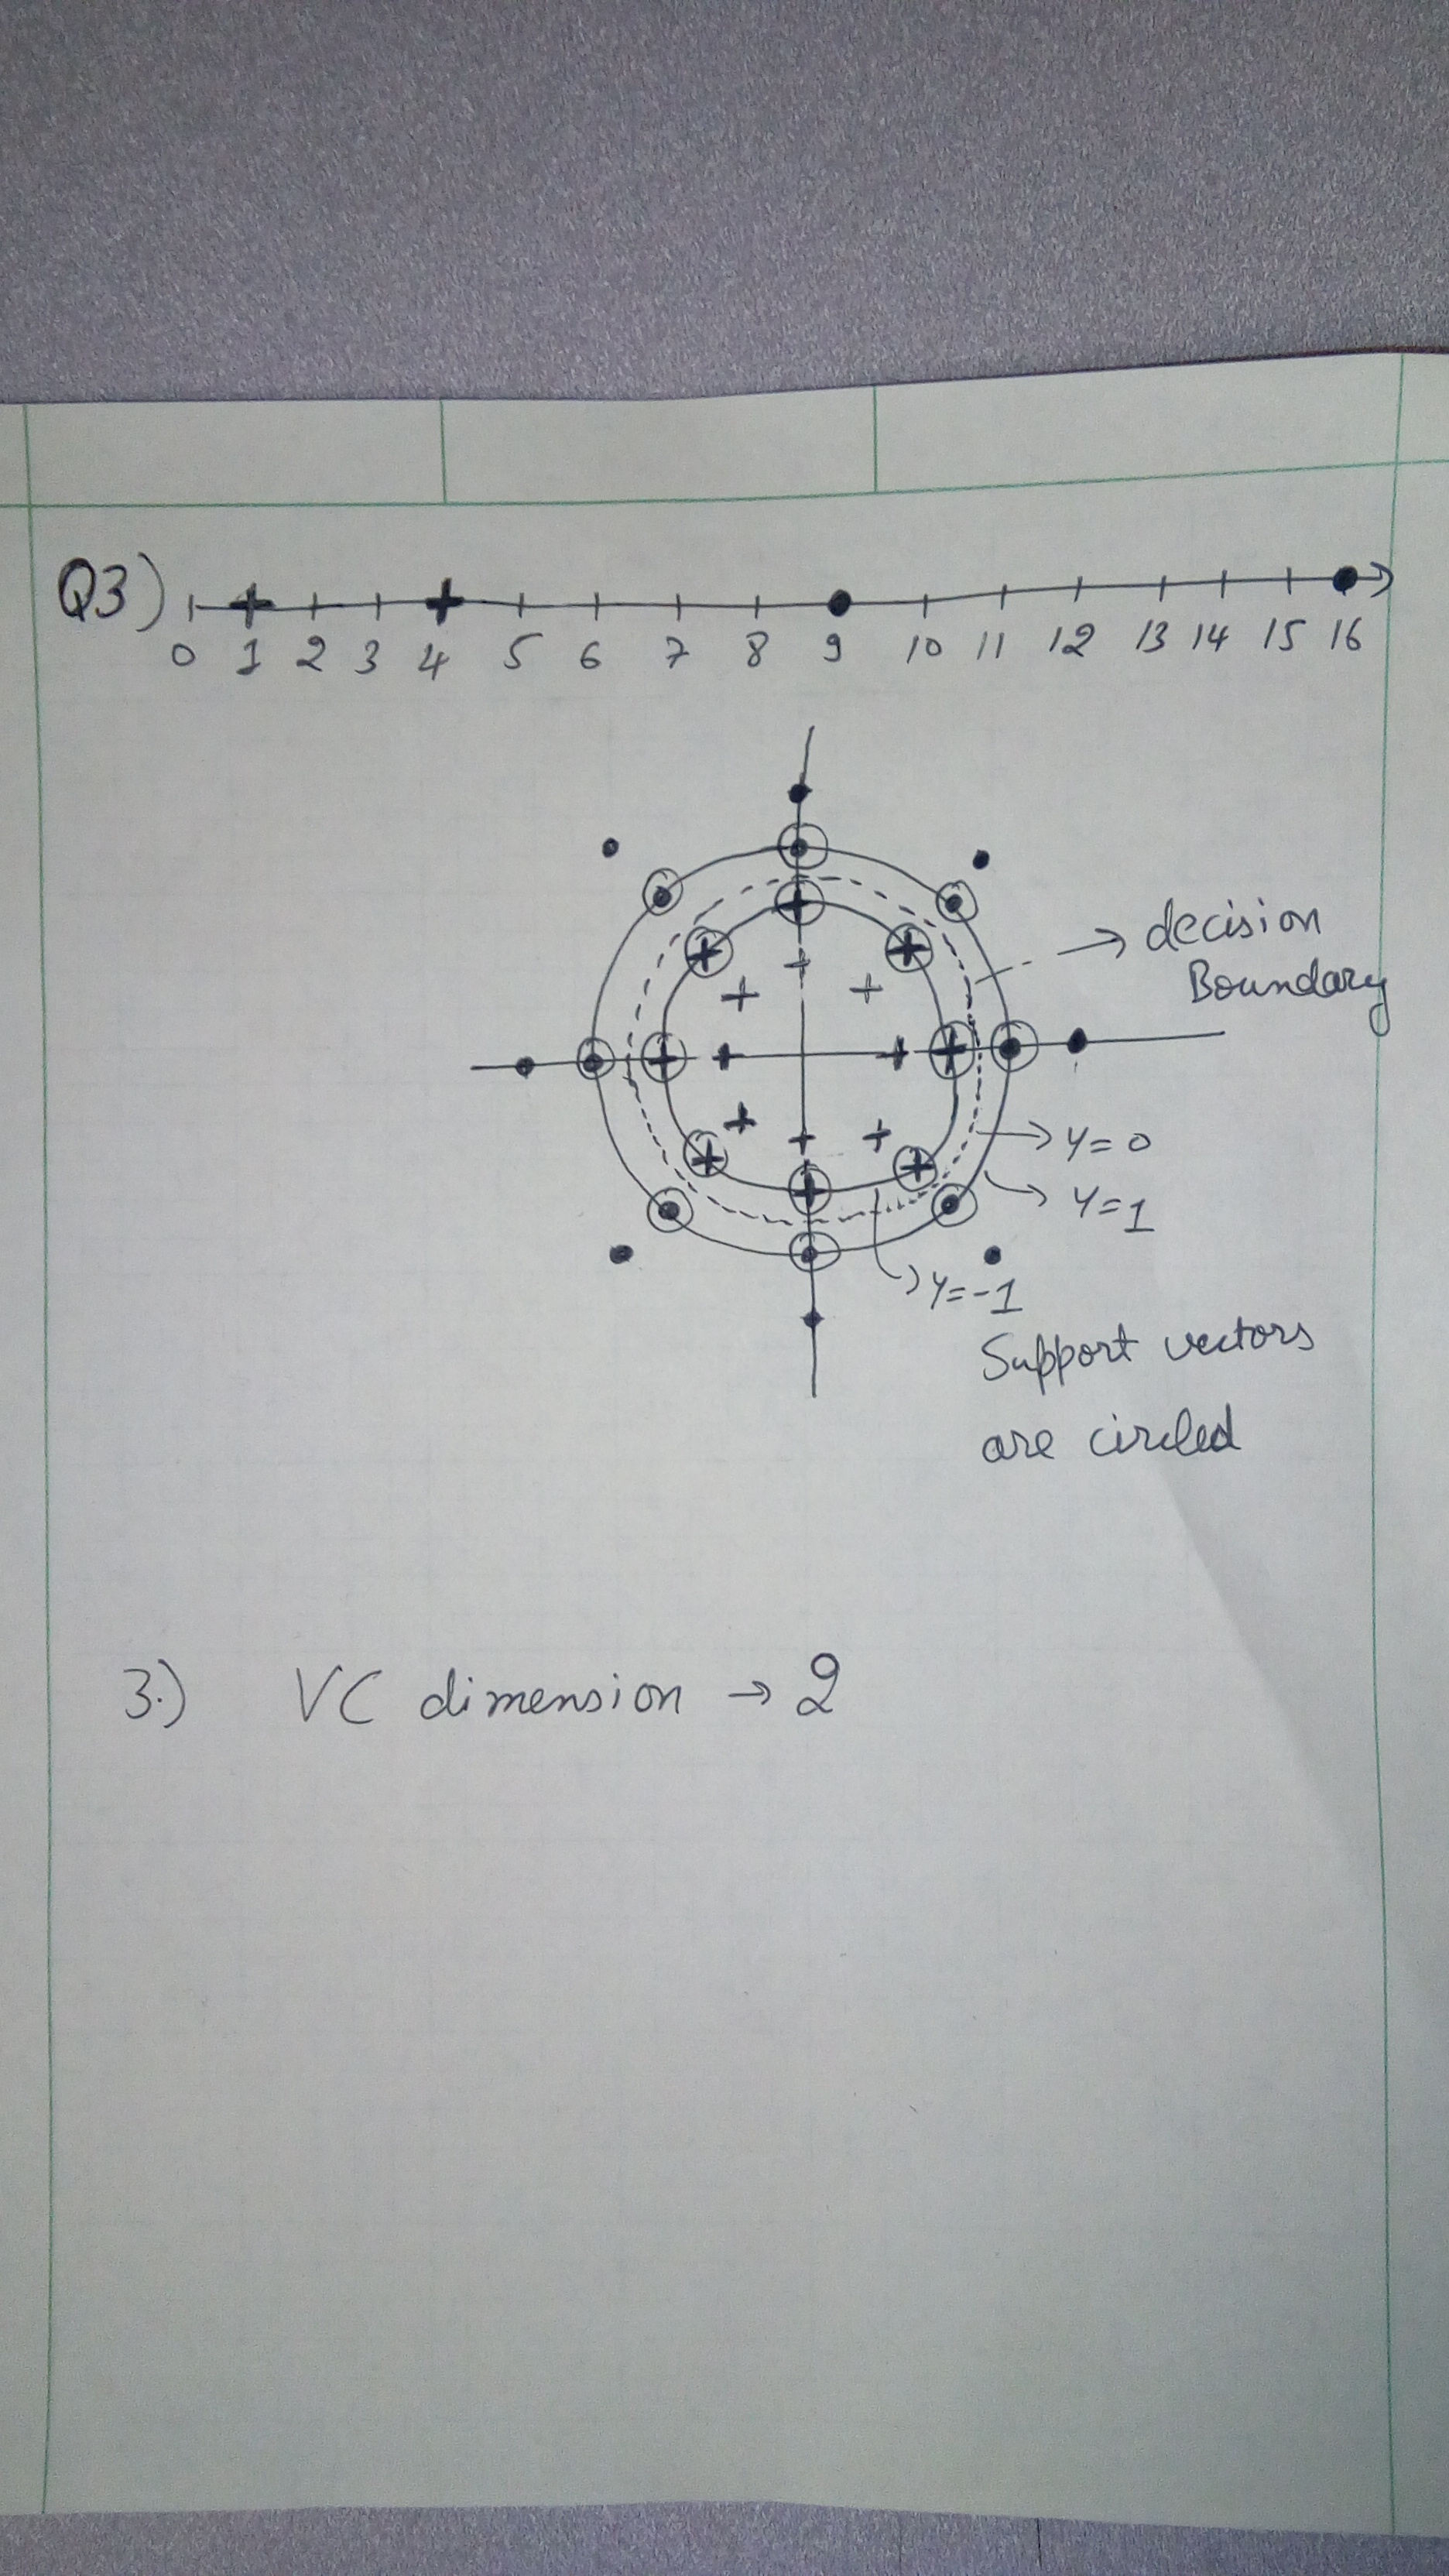 Q3)
0 1 2 3 4 5 6 7 8 9 10 11 12 13 14 15 16
decision
Boundary
y=0
y=1
y=-1
Support vectors
are circled
3.) VC dimension → 2